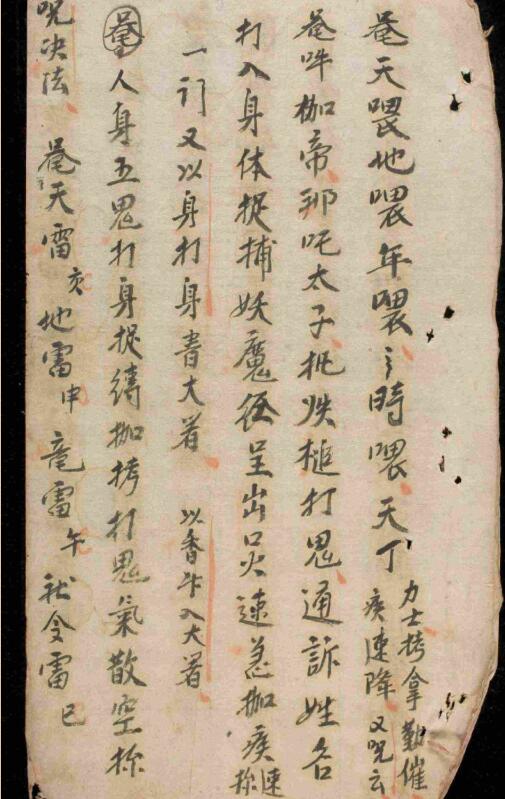 唵天喂地喂年喂〻時喂天丁力士拷拿勤催疾速降又咒云
唵吽枷帝那吒太子執鉄槌打鬼通訴姓名
打入身体捉捕妖魔徑呈出口火速急枷疾速
一訂又以身打身書大著 以香牛入大著
唵人身五鬼打身捉縛枷拷打鬼氣散空
呪決法 唵天雷亥地雷申竜雷午社令雷巳